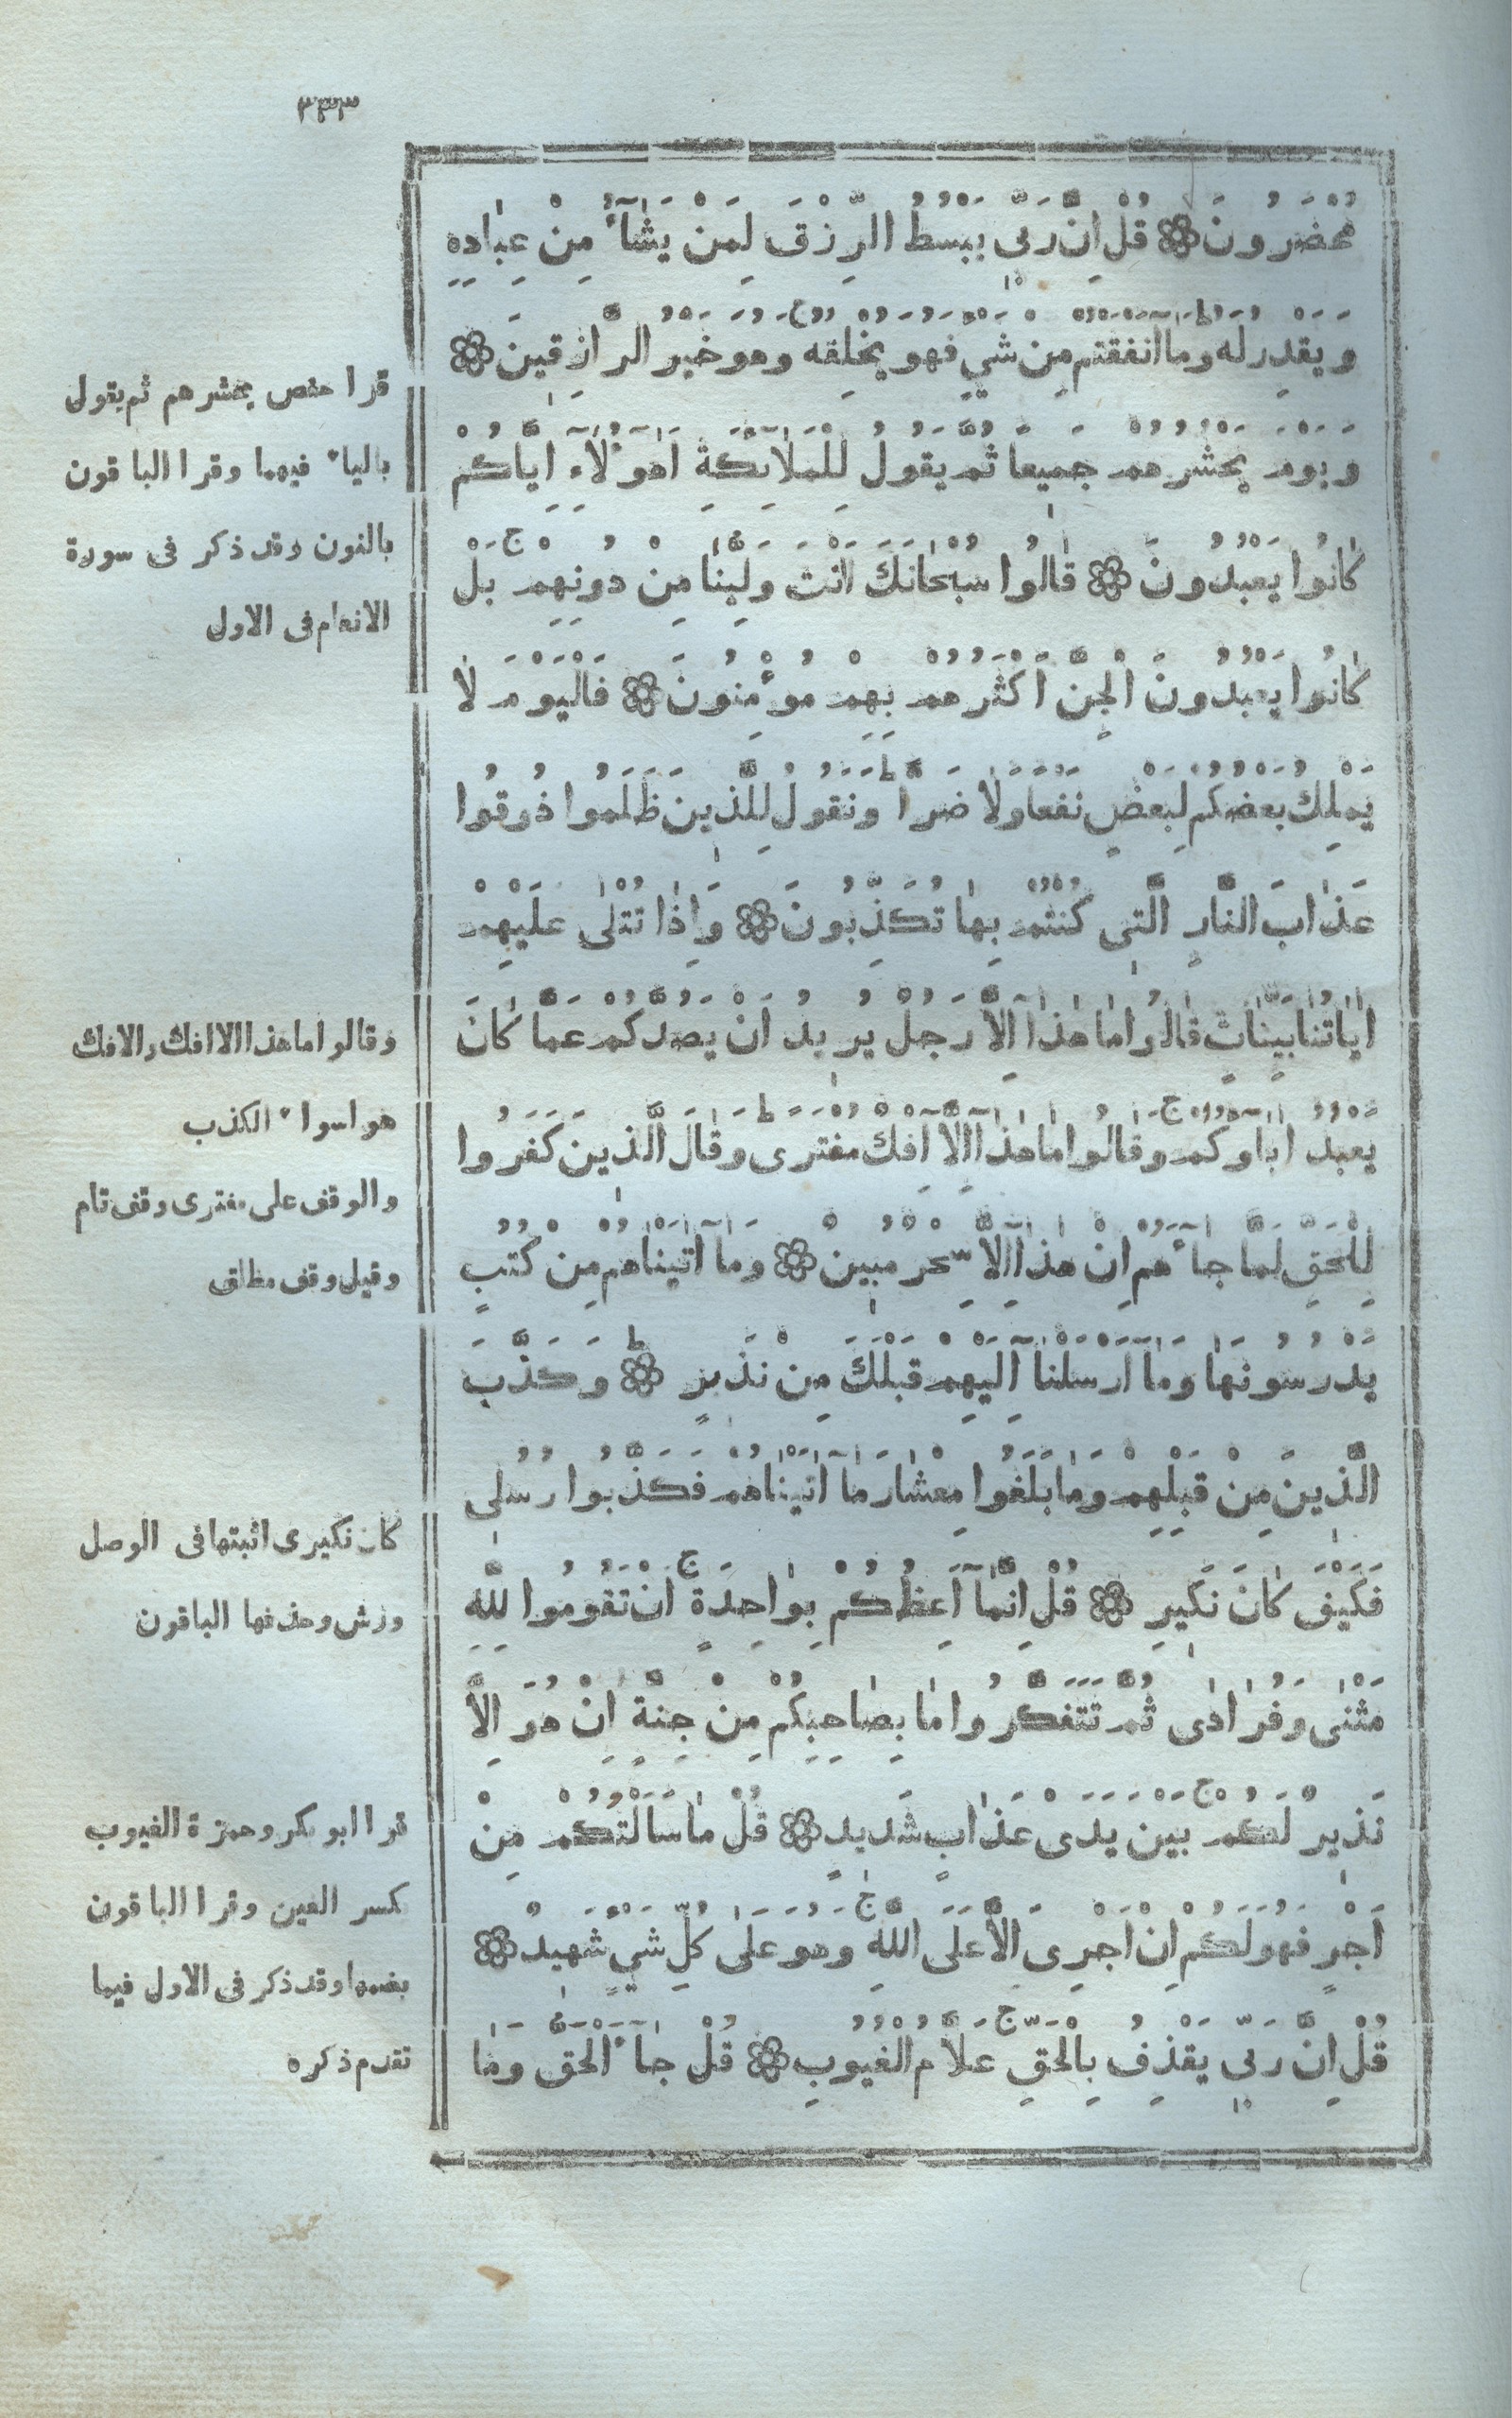 ٣٣٣
مُحْضَرُونَ ۞ قُلْ اِنَّ رَبِّى يَبْسُطُ الرِّزْقَ لِمَنْ يَشَآءُ مِنْ عِبَادِهِ
وَيَقْدِرُ لَهُ ط وَمَآ اَنْفَقْتُمْ مِنْ شَيْءٍ فَهُوَ يُخْلِفُهُ ج وَهُوَ خَيْرُ الرَّازِقِينَ ۞
وَيَوْمَ يَحْشُرُهُمْ جَمِيعًا ثُمَّ يَقُولُ لِلْمَلَآئِكَةِ اَهَؤُلَآءِ اِيَّاكُمْ
كَانُوا يَعْبُدُونَ ۞ قَالُوا سُبْحَانَكَ اَنْتَ وَلِيُّنَا مِنْ دُونِهِمْ ج بَلْ
كَانُوا يَعْبُدُونَ الْجِنَّ اَكْثَرُهُمْ بِهِمْ مُؤْمِنُونَ ۞ فَالْيَوْمَ لَا
يَمْلِكُ بَعْضُكُمْ لِبَعْضٍ نَفْعًا وَلَا ضَرًّا ط وَنَقُولُ لِلَّذِينَ ظَلَمُوا ذُوقُوا
عَذَابَ النَّارِ الَّتِى كُنْتُمْ بِهَا تُكَذِّبُونَ ۞ وَاِذَا تُتْلَى عَلَيْهِمْ
اٰيَاتُنَا بَيِّنَاتٍ قَالُوا مَا هَذَآ اِلَّا رَجُلٌ يُرِيدُ اَنْ يَصُدَّكُمْ عَمَّا كَانَ
يَعْبُدُ اٰبَآوُكُمْ ج وَقَالُوا مَا هَذَآ اِلَّآ اِفْكٌ مُفْتَرًى ط وَقَالَ الَّذِينَ كَفَرُوا
لِلْحَقِّ لَمَّا جَآءَهُمْ اِنْ هَذَآ اِلَّا سِحْرٌ مُبِينٌ ۞ وَمَآ اٰتَيْنَاهُمْ مِنْ كُتُبٍ
يَدْرُسُونَهَا وَمَآ اَرْسَلْنَآ اِلَيْهِمْ قَبْلَكَ مِنْ نَذِيرٍ ط ۞ وَكَذَّبَ
الَّذِينَ مِنْ قَبْلِهِمْ وَمَا بَلَغُوا مِعْشَارَ مَآ اٰتَيْنَاهُمْ فَكَذَّبُوا رُسُلِى
فَكَيْفَ كَانَ نَكِيرِ ۞ قُلْ اِنَّمَآ اَعِظُكُمْ بِوَاحِدَةٍ ج اَنْ تَقُومُوا لِلّٰهِ
مَثْنَى وَفُرَادَى ثُمَّ تَتَفَكَّرُوا مَا بِصَاحِبِكُمْ مِنْ جِنَّةٍ اِنْ هُوَ اِلَّا
نَذِيرٌ لَكُمْ ج بَيْنَ يَدَىْ عَذَابٍ شَدِيدٍ ۞ قُلْ مَا سَاَلْتُكُمْ مِنْ
اَجْرٍ فَهُوَ لَكُمْ اِنْ اَجْرِىَ اِلَّا عَلَى اللّٰهِ ج وَهُوَ عَلَى كُلِّ شَيْءٍ شَهِيدٌ ۞
قُلْ اِنَّ رَبِّى يَقْذِفُ بِالْحَقِّ ج عَلَّامُ الْغُيُوبِ ۞ قُلْ جَآءَ الْحَقُّ وَمَا
قرا حفص يحشرهم ثم يقول
بالياء فيهما وقرا الباقون
بالنون وقد ذكر فى سورة
الانعام فى الاول
وقالوا ما هذا الا افك والافك
هو اسواء الكذب
والوقف على مفترى وقف تام
وقيل وقف مطلق
كان نكيرى اثبتها فى الوصل
ورش وحذفها الباقون
قرا ابو بكر وحمزة الغيوب
بكسر الغين وقرا الباقون
بضمها وقد ذكر فى الاول فيما
تقدم ذكره